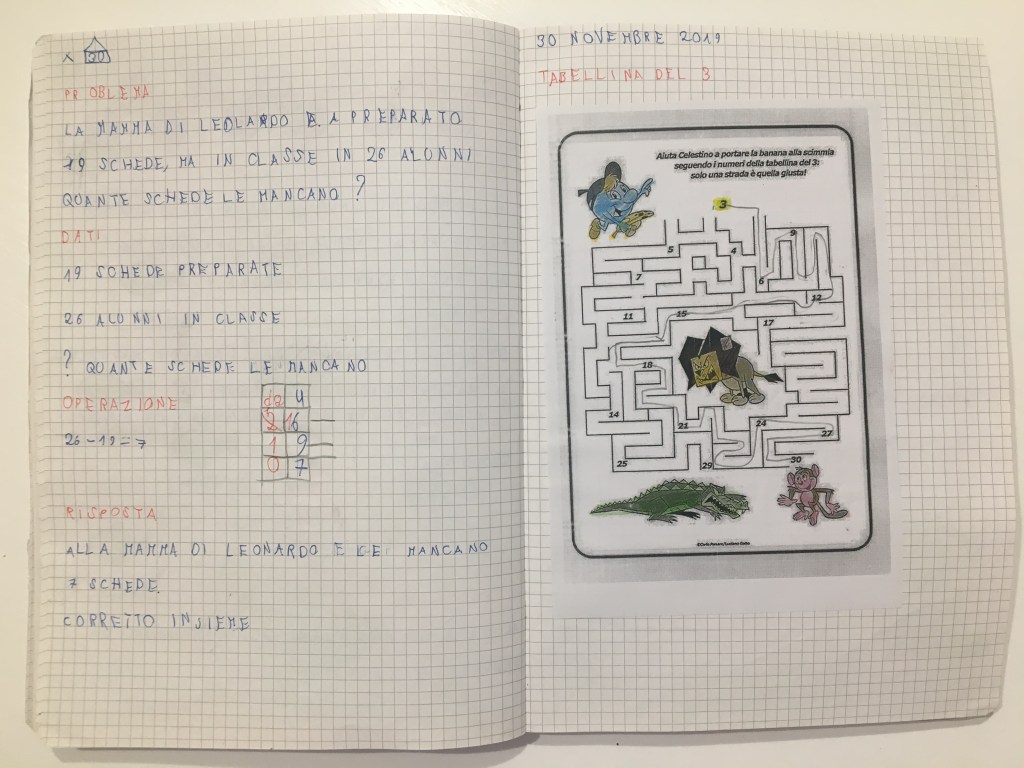 × 30
PROBLEMA
LA MAMMA DI LEOLARDO E A PREPARATO
19 SCHEDE, MA IN CLASSE IN 26 ALONNI
QUANTE SCHEDE LE MANCANO ?
DATI
19 SCHEDE PREPARATE
26 ALONNI IN CLASSE
? QUANTE SCHEDE LE MANCANO
OPERAZIONE
26-19=7
da 4
2 16
1 9
0 7
RISPOSTA
ALLA MAMMA DI LEONARDO E MANCANO
7 SCHEDE.
CORRETTO INSIEME
30 NOVEMBRE 2019
TABELLINA DEL 3
Aiuta Celestino a portare la banana alla scimmia
seguendo i numeri della tabellina del 3:
solo una strada è quella giusta!
3
9
5 4
7 6
12
11 15
17
18
14
21 24
27
25 29 30